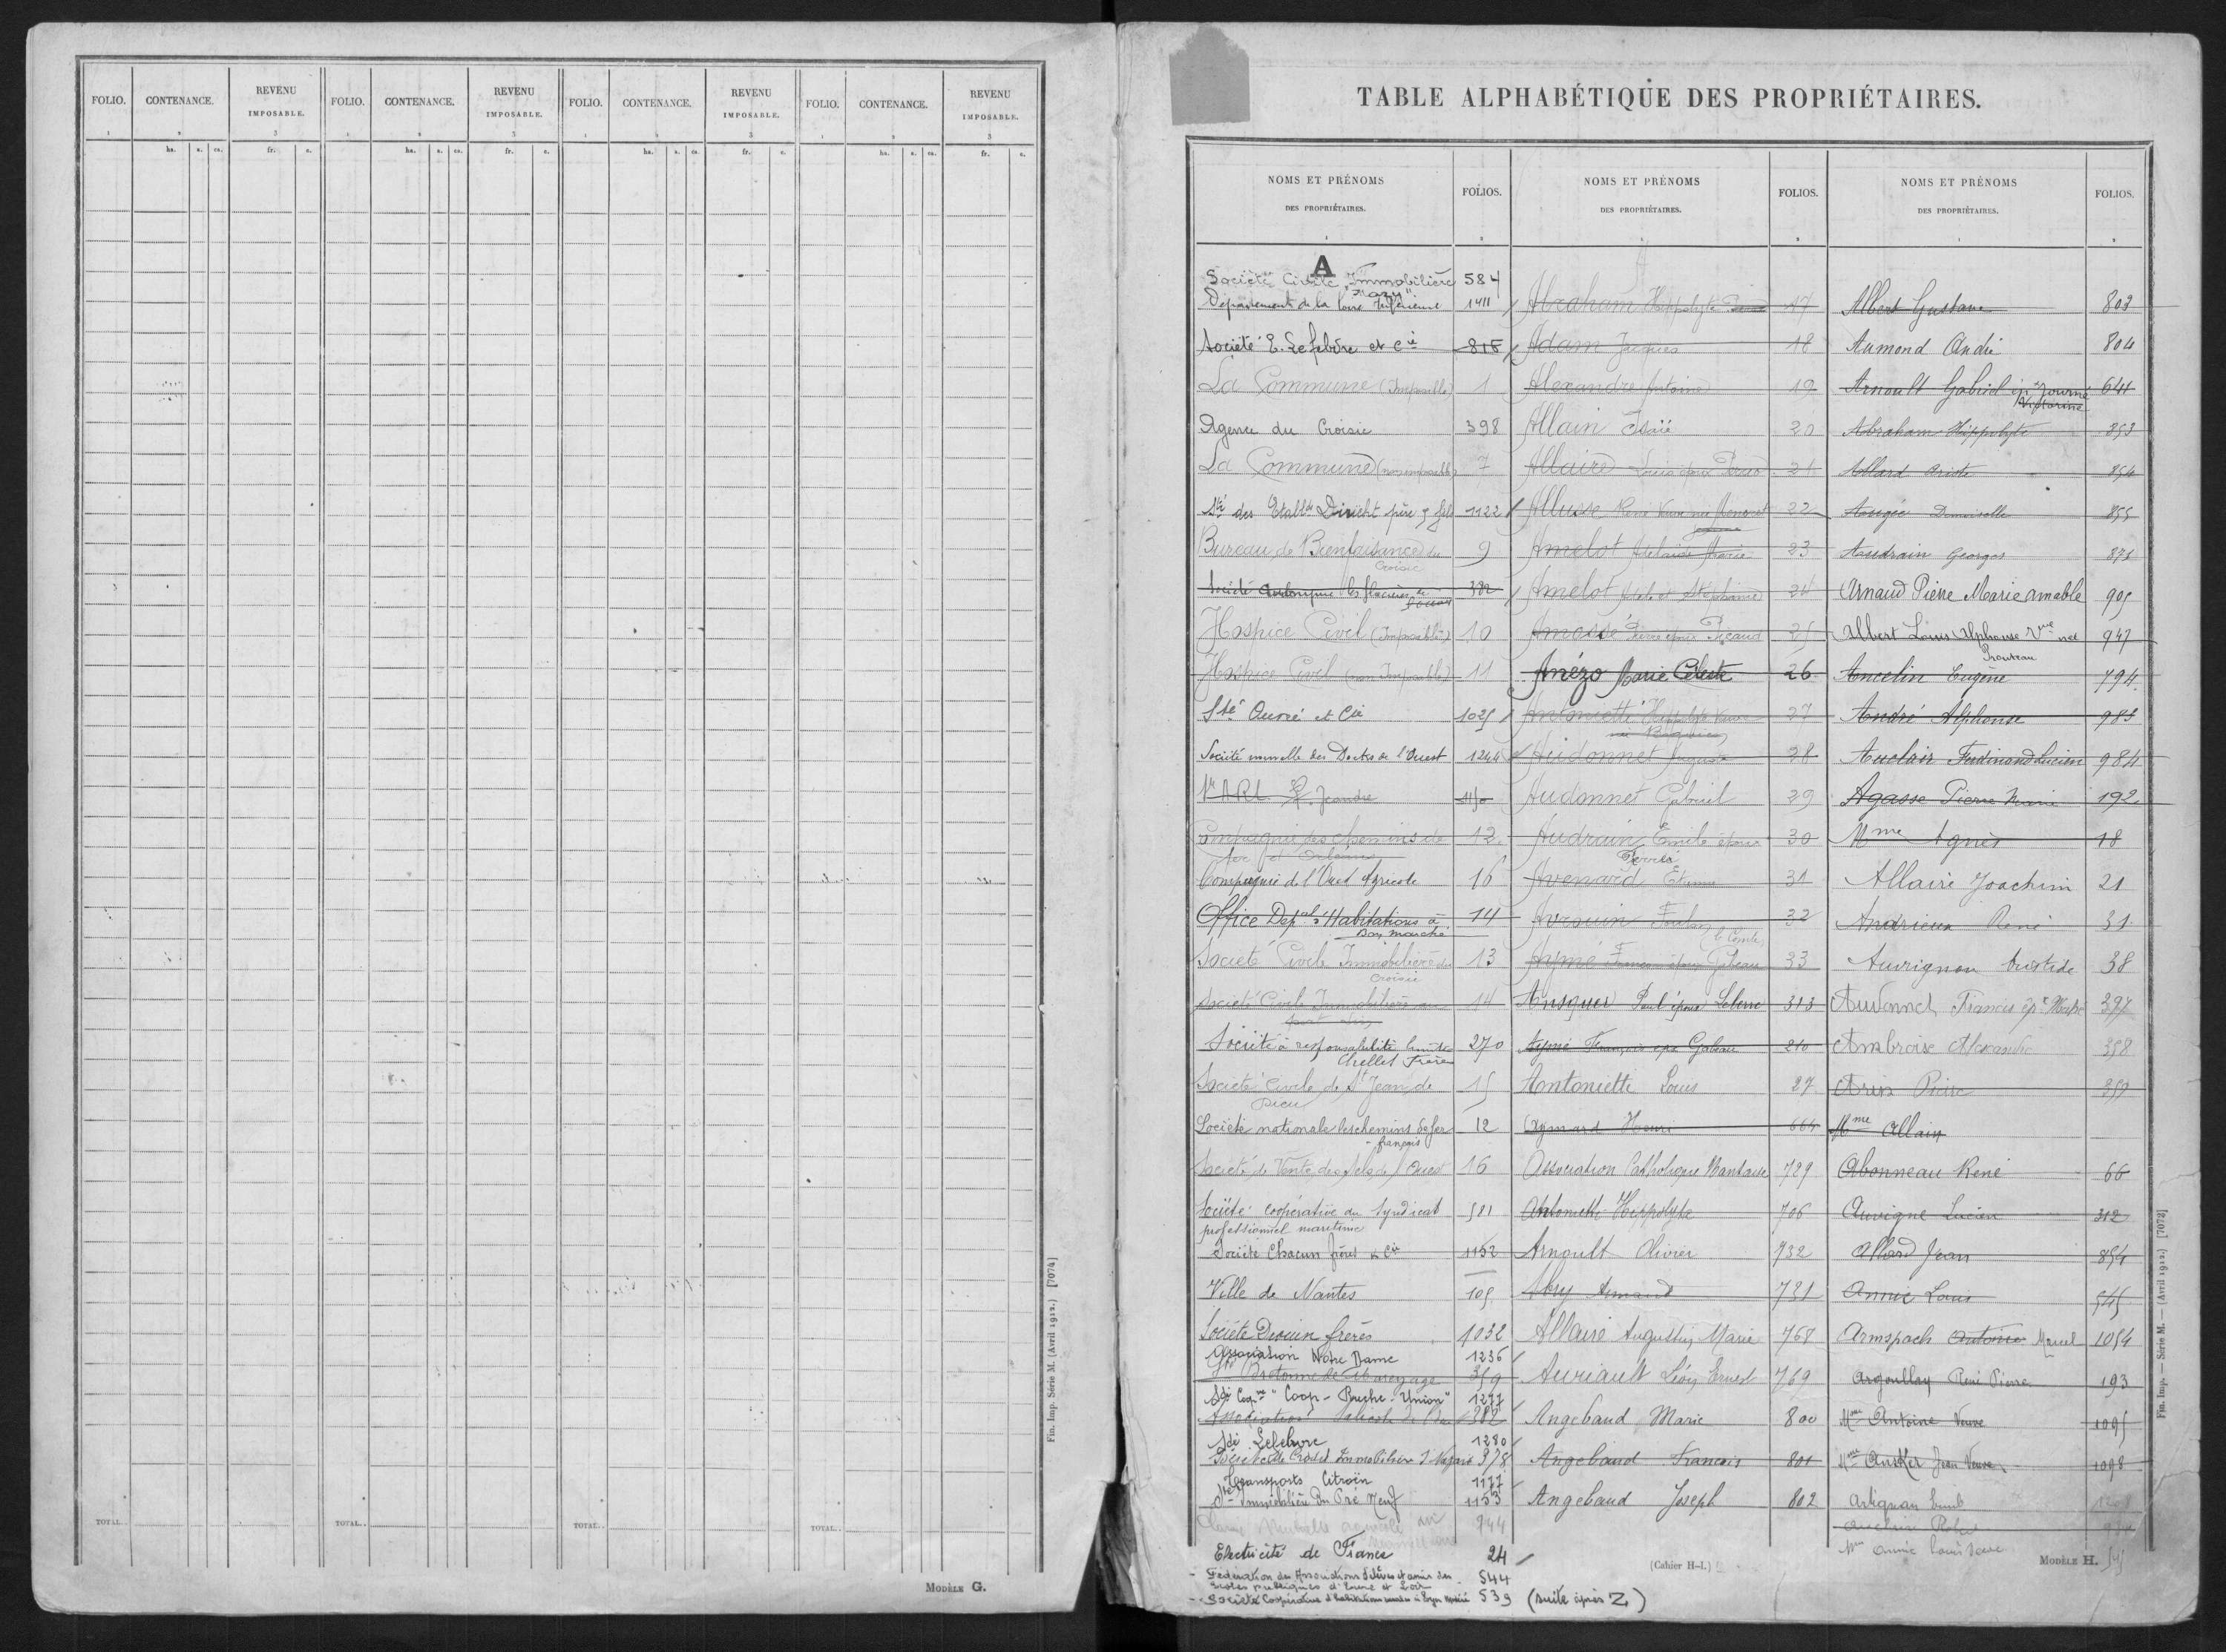 FOLIO. CONTENANCE. REVENU IMPOSABLE. FOLIO. CONTENANCE. REVENU IMPOSABLE. FOLIO. CONTENANCE. REVENU IMPOSABLE. FOLIO. CONTENANCE. REVENU IMPOSABLE.
1 2 3 1 2 3 1 2 3 1 2 3
ha. a. ca. fr. c. ha. a. ca. fr. c. ha. a. ca. fr. c. ha. a. ca. fr. c.
TOTAL.. TOTAL.. TOTAL.. TOTAL..
Fin. Imp. Série M. (Avril 1912.) [7074]
MODÈLE G.
TABLE ALPHABÉTIQUE DES PROPRIÉTAIRES.
NOMS ET PRÉNOMS
DES PROPRIÉTAIRES.
FOLIOS.
A
Société Civile Immobilière 584
"Mary"
Département de la Loire Inférieure 1411
Société E. Lefebvre et Cie 818
La Commune (Imposable) 1
Agence du Croisic 398
La Commune (non imposable) 7
Sté des Etablts père & fils 1122
Bureau de Bienfaisance du 9
Croisic
Société Anonyme les Glacières de 382
Hospice Civil (Imposable) 10
Hospice Civil (non Imposable) 11
Sté et Cie 1025
Société nouvelle des Docks de l'Ouest 1244
Sté ARL Jeandre 450
Compagnie des chemins de 12
fer d'Orléans
Compagnie de l'Ouest Agricole 16
Office Depal d'Habitations à 14
Bon marché
Société Civile Immobilière du 13
Croisic
Société Civile Immobilière 14
Société à responsabilité limitée 270
Chellet Frères
Société Civile de St Jean de 15
Dieu
Société nationale des chemins de fer 12
français
Société de Vente des Sels de l'Ouest 16
Société coopérative du Syndicat 581
professionnel maritime
Société Chacun frères & Cie 1152
Ville de Nantes 105
Société Drouin frères 1032
Association Notre Dame 1236
Sté Bretonne de Mareyage 359
Sté Coopve "Coop-Ruche-Union" 1277
Association 382
Sté Lefebvre 1280
Société de Crédit Immobilier St Nazaire 378
Stés Transports Citroën 1177
Sté Immobilière du Pré Neuf 1153
944
Electricité de France 24
- Fédération des Associations d'élèves et amis des 544
Ecoles publiques d'Eure et Loir
- Société Coopérative d'habitations à Bon Marché 539 (suite après Z)
NOMS ET PRÉNOMS
DES PROPRIÉTAIRES.
FOLIOS.
A
Abraham Hippolyte 17
Adam Jacques 18
Alexandre Antoine 19
Allain Isaïe 20
Allaire Louis époux 21
Allusse René Veuve née 22
Amelot Adelaïde Marie 23
Amelot Adele et Stéphanie 24
Amossé Pierre époux Picaud 25
Anézo Marie Céleste 26
Antoniette Hippolyte Veuve 27
Audonnet Auguste 28
Audonnet Gabriel 29
Audrain Emile époux 30
Avenard Etienne 31
Avrouin Foulon 32
Aymé François époux Gabeau 33
Ansquer Paul époux Leberre 313
Aymé François epx Gabeau 210
Antoniette Louis 27
Aymard Henri 664
Association Catholique Nantaise 729
Antoniette Hippolyte 706
Arnoult Olivier 732
Abry Armand 731
Allaire Augustin Marie 768
Auriault Léon Ernest 769
Angebaud Marie 800
Angebaud François 801
Angebaud Joseph 802
(Cahier H-I.)
NOMS ET PRÉNOMS
DES PROPRIÉTAIRES.
FOLIOS.
Albert Gustave 803
Aumond André 804
Arnoult Gabriel épx Journé 641
Victorine
Abraham Hippolyte 853
Allard Ariste 854
Augée Demoiselle 855
Audrain Georges 871
Arnaud Pierre Marie amable 905
Albert Louis Alphonse Vve née 947
Prouteau
Ancelin Eugène 794
André Alphonse 983
Auclair Ferdinand Lucien 984
Agasse Pierre Marie 192
Mme Agnès 18
Allaire Joachim 21
Andrieux René 31
Auvignon Aristide 38
Audonnet Francis épx 397
Ambroise Alexandre 358
Arin Pierre 359
Mme Allain
Abonneau René 66
Auvigne Lucien 312
Allard Jean 854
Annic Louis 545
Armspach Antoine Marcel 1054
Argoullay René Pierre 193
Mme Antoine Veuve 1095
Mme Ansker Jean Veuve 1098
Artignan
Mme Annic Louis Veuve 545
MODÈLE H.
Fin. Imp. — Série M. — (Avril 1912.) [7073]